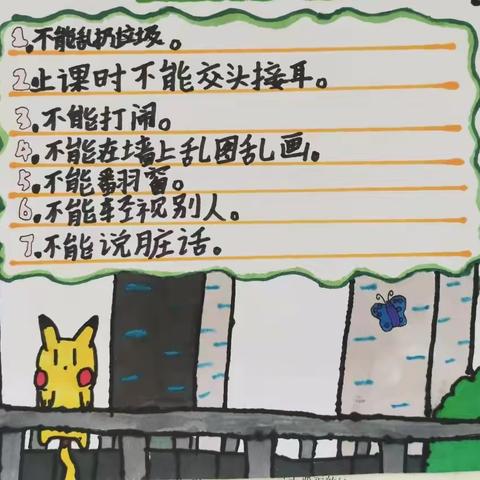 1.不能乱扔垃圾。
2.上课时不能交头接耳。
3.不能打闹。
4.不能在墙上乱图乱画。
5.不能翻窗。
6.不能轻视别人。
7.不能说脏话。